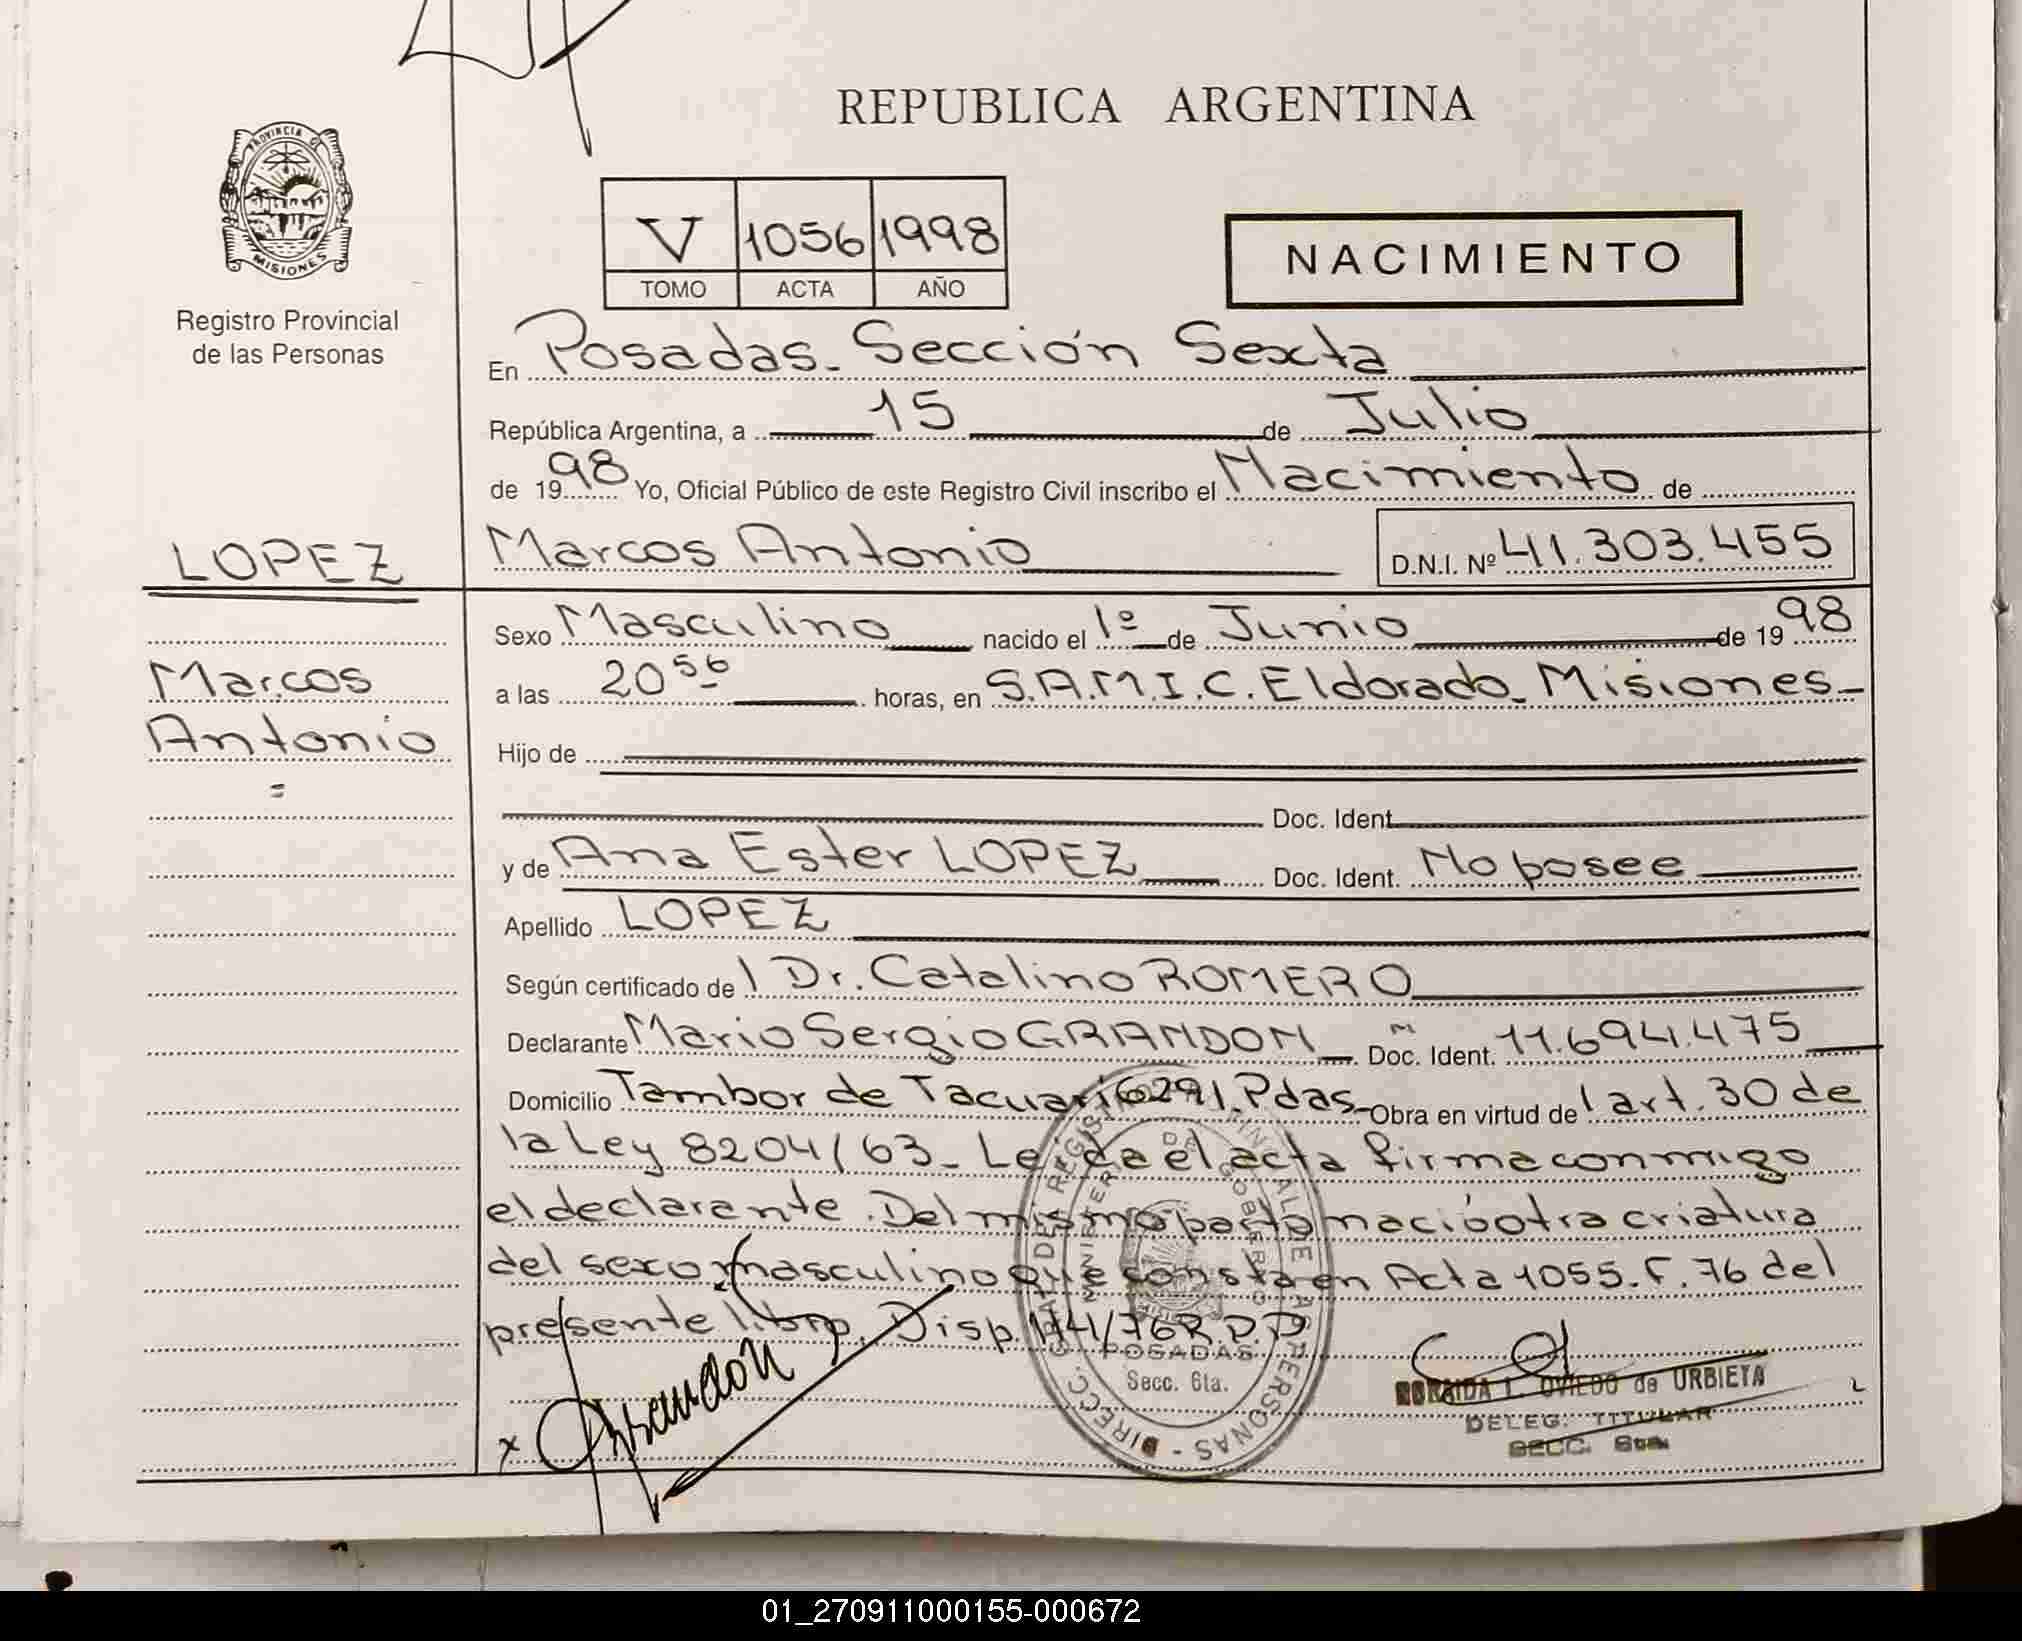 REPUBLICA ARGENTINA
PROVINCIA DE MISIONES
Registro Provincial
de las Personas
V 1056 1998
TOMO ACTA AÑO
NACIMIENTO
En Posadas - Sección Sexta
República Argentina, a 15 de Julio
de 1998 Yo, Oficial Público de este Registro Civil inscribo el Nacimiento de
LOPEZ
Marcos Antonio D.N.I. Nº 41.303.455
Marcos
Antonio
=
Sexo Masculino nacido el 1º de Junio de 1998
a las 20 56 horas, en S.A.M.I.C. Eldorado - Misiones -
Hijo de
Doc. Ident.
y de Ana Ester LOPEZ Doc. Ident. No posee
Apellido LOPEZ
Según certificado del Dr. Catalino ROMERO
Declarante Mario Sergio GRANDON M Doc. Ident. 11.694.475
Domicilio Tambor de Tacuarí 6291. Pdas - Obra en virtud del art. 30 de
la Ley 8204/63 - Leída el acta firma conmigo
el declarante. Del mismo parto nació otra criatura
del sexo masculino que consta en Acta 1055. F. 76 del
presente libro. Disp. 114/76 R.P.P
DIRECC. GRAL DE REGISTRO PROVINCIAL DE LAS PERSONAS
MINISTERIO DE GOBIERNO
POSADAS
Secc. 6ta.
x Grandon
L. OVIEDO de URBIETA
DELEG. TITULAR
SECC. 6ta.
01_270911000155-000672